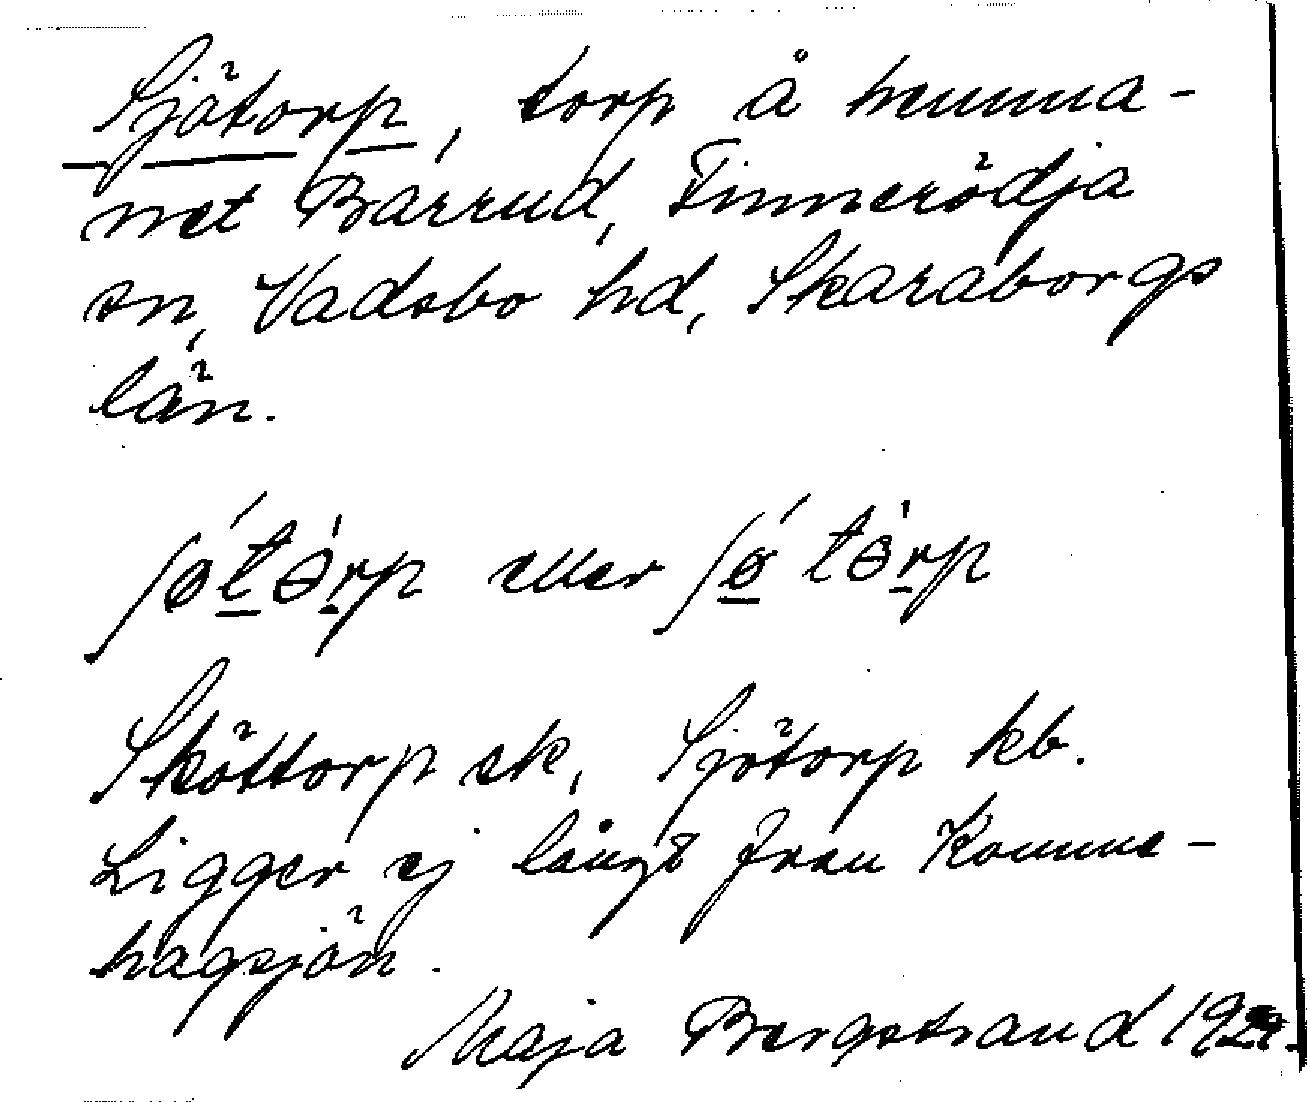 Sjötorp, torp å hemma-
net Bårrud, Finnerödja
sn, Vadsbo hd, Skaraborgs
län.
eller
Sköttorp ek, Sjötorp kb.
Ligger ej långt från
hagsjön.
Maja Bergstrand